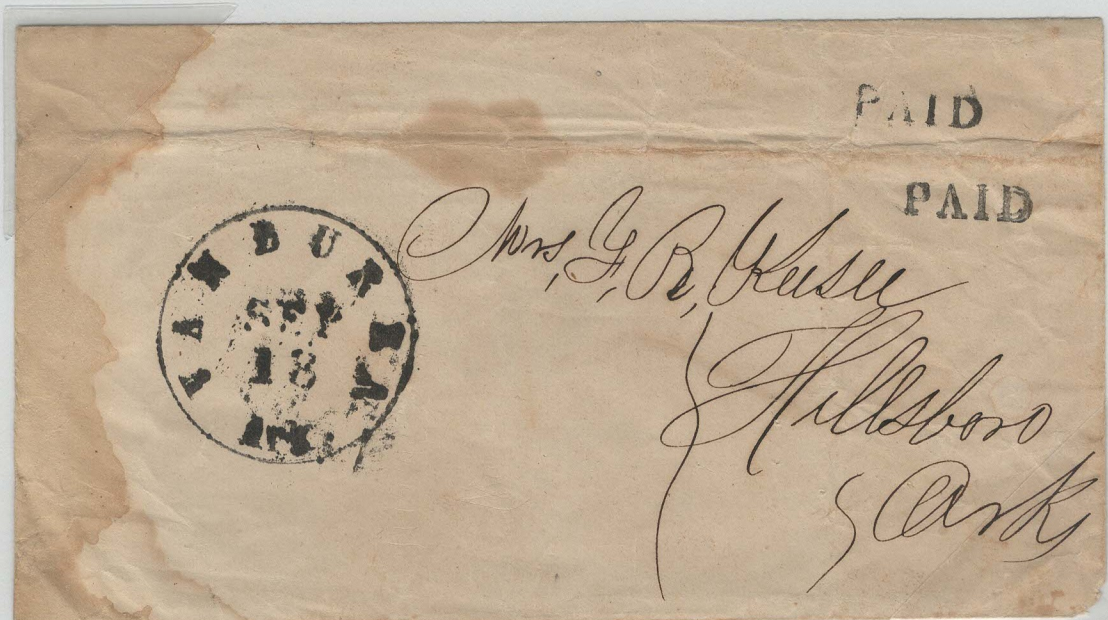 PAID
PAID
VAN BUREN
SEP
18
Ark.
Mrs, F, R,
Hillsboro
Arks